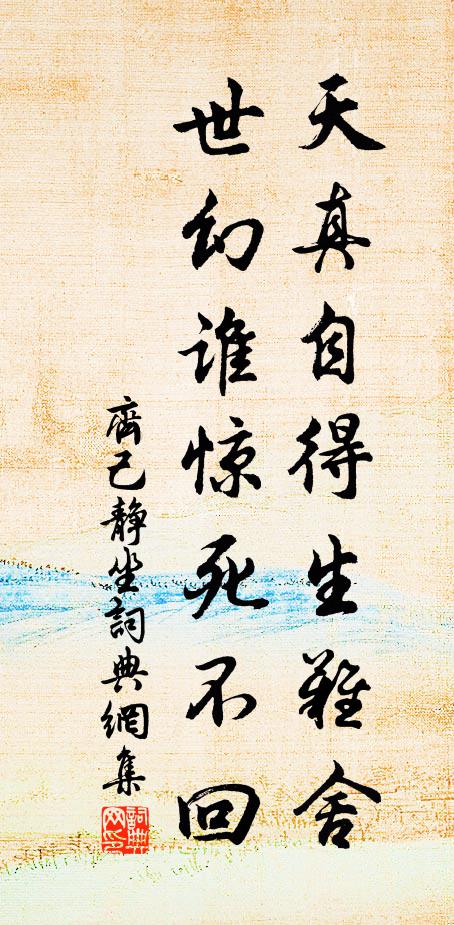 天真自得生難舍
世幻谁惊死不回
齊己静坐詞典網集
詞典
网印